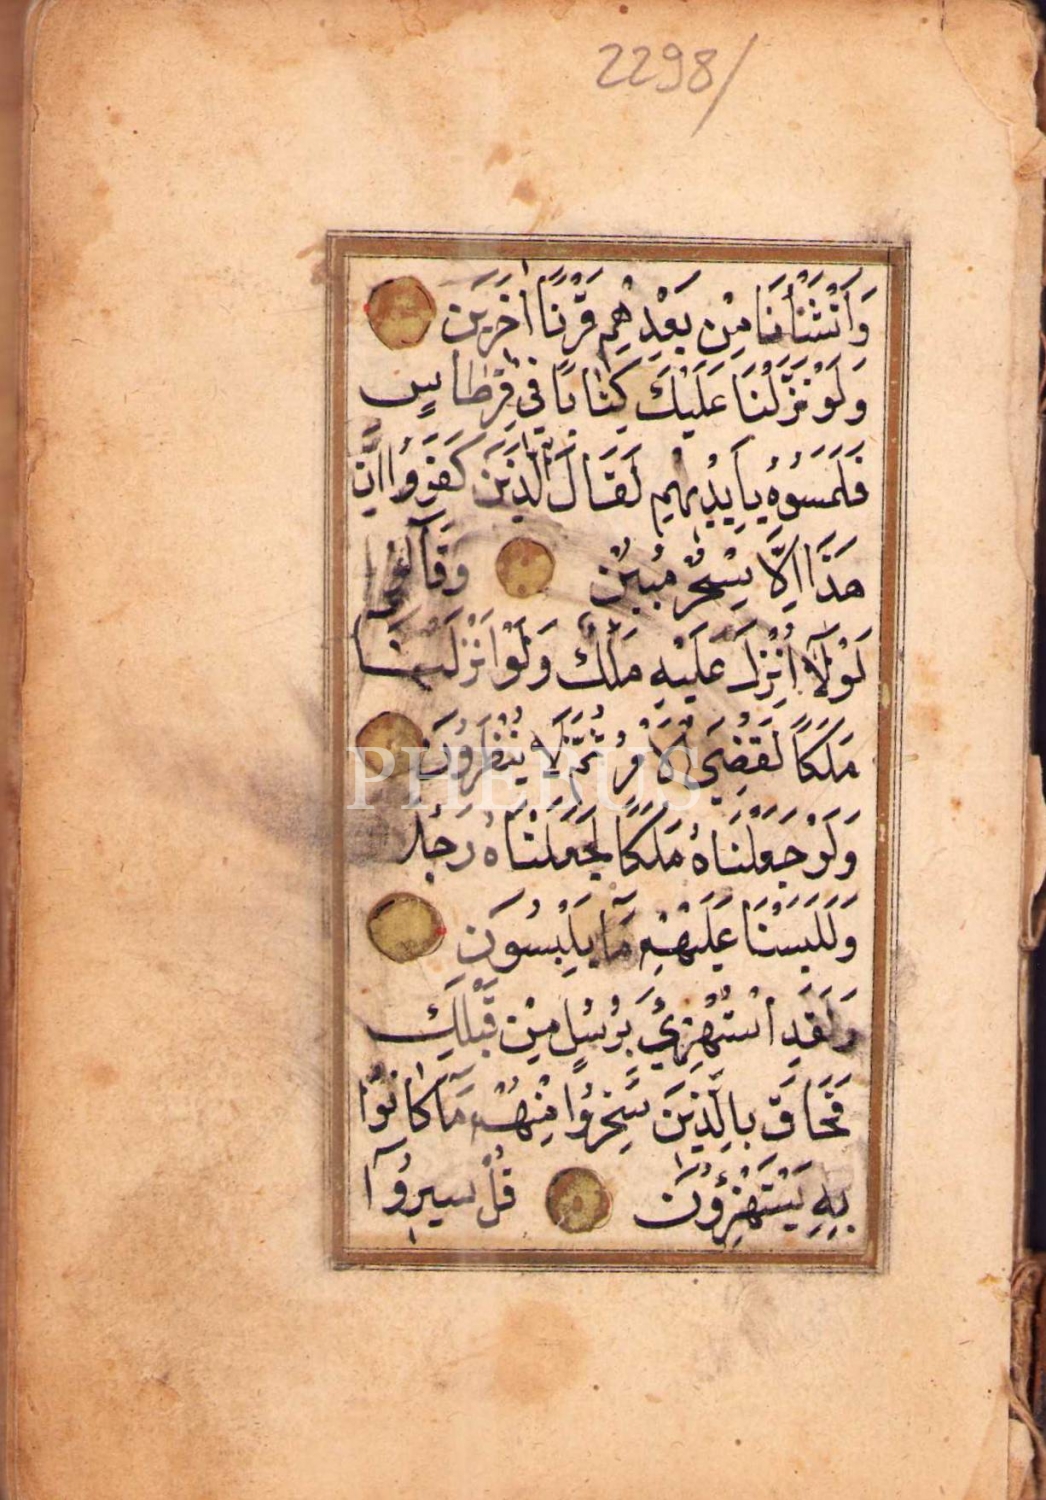 2298/
وَاَنْشَأْنَا مِنْ بَعْدِهِمْ قَرْنًا اٰخَرِينَ
وَلَوْ نَزَّلْنَا عَلَيْكَ كِتَابًا فِي قِرْطَاسٍ
فَلَمَسُوهُ بِاَيْدِيهِمْ لَقَالَ الَّذِينَ كَفَرُوا اِنْ
هٰذَا اِلَّا سِحْرٌ مُبِينٌ وَقَالُوا
لَوْلَٓا اُنْزِلَ عَلَيْهِ مَلَكٌ وَلَوْ اَنْزَلْنَا
مَلَكًا لَقُضِيَ الْاَمْرُ ثُمَّ لَا يُنْظَرُونَ
وَلَوْ جَعَلْنَاهُ مَلَكًا لَجَعَلْنَاهُ رَجُلًا
وَلَلَبَسْنَا عَلَيْهِمْ مَا يَلْبِسُونَ
وَلَقَدِ اسْتُهْزِئَ بِرُسُلٍ مِنْ قَبْلِكَ
فَحَاقَ بِالَّذِينَ سَخِرُوا مِنْهُمْ مَا كَانُوا
بِهِ يَسْتَهْزِؤُنَ قُلْ سِيرُوا
PHEBUS